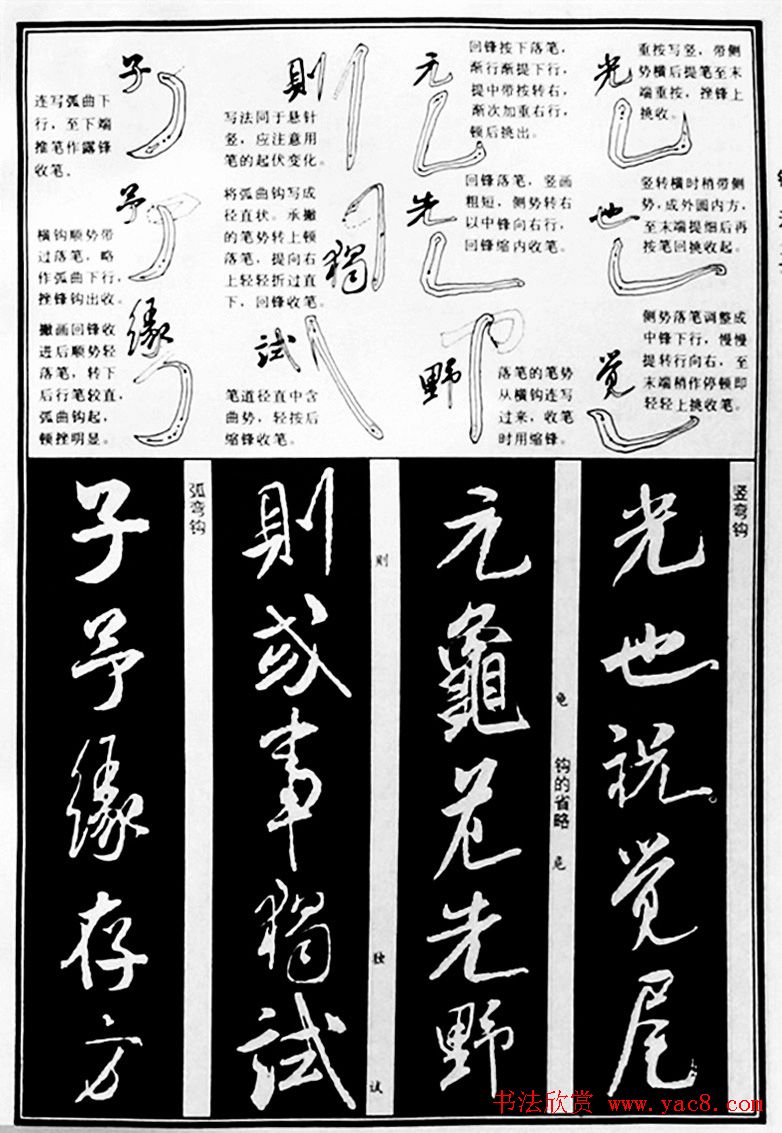 光
重按写竖，带侧
势横后提笔至末
端重按，挫锋上
挑收。
也
竖转横时稍带侧
势，成外圆内方，
至末端提细后再
按笔回挑收起。
觉
侧势落笔调整成
中锋下行，慢慢
提转行向右，至
末端稍作停顿即
轻轻上挑收笔。
元
回锋按下落笔，
渐行渐提下行，
提中带按转右，
渐次加重右行，
顿后挑出。
先
回锋落笔，竖画
粗短，侧势转右
以中锋向右行，
回锋缩内收笔。
野
落笔的笔势
从横钩连写
过来，收笔
时用缩锋。
則
写法同于悬针
竖，应注意用
笔的起伏变化。
獨
将弧曲钩写成
径直状。承撇
的笔势转上顿
落笔，提向右
上轻轻折过直
下，回锋收笔。
試
笔道径直中含
曲势，轻按后
缩锋收笔。
子
连写弧曲下
行，至下端
推笔作露锋
收笔。
予
横钩顺势带
过落笔，略
作弧曲下行，
挫锋钩出收。
緣
撇画回锋收
进后顺势轻
落笔，转下
后行笔较直，
弧曲钩起，
顿挫明显。
竖弯钩
光也祝觉尾
龟
钩的省略
元龜
先野
则
独
试
則或事獨試
弧弯钩
子予緣存方
书法欣赏 www.yac8.com